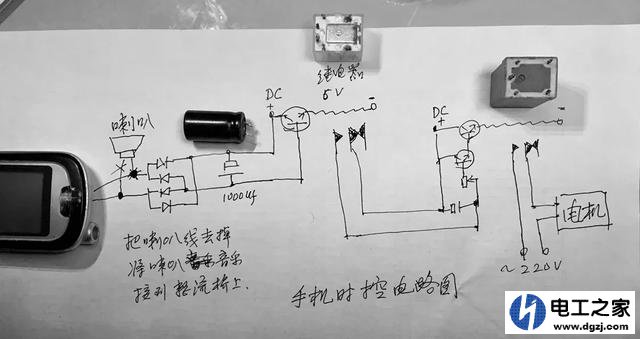 继电器
5V
DC
+
-
喇叭
1000uf
DC
+
-
电机
~220V
把喇叭线去掉
将喇叭音乐
接到整流桥上.
手机时控电路图
电工之家
www.dgzj.com